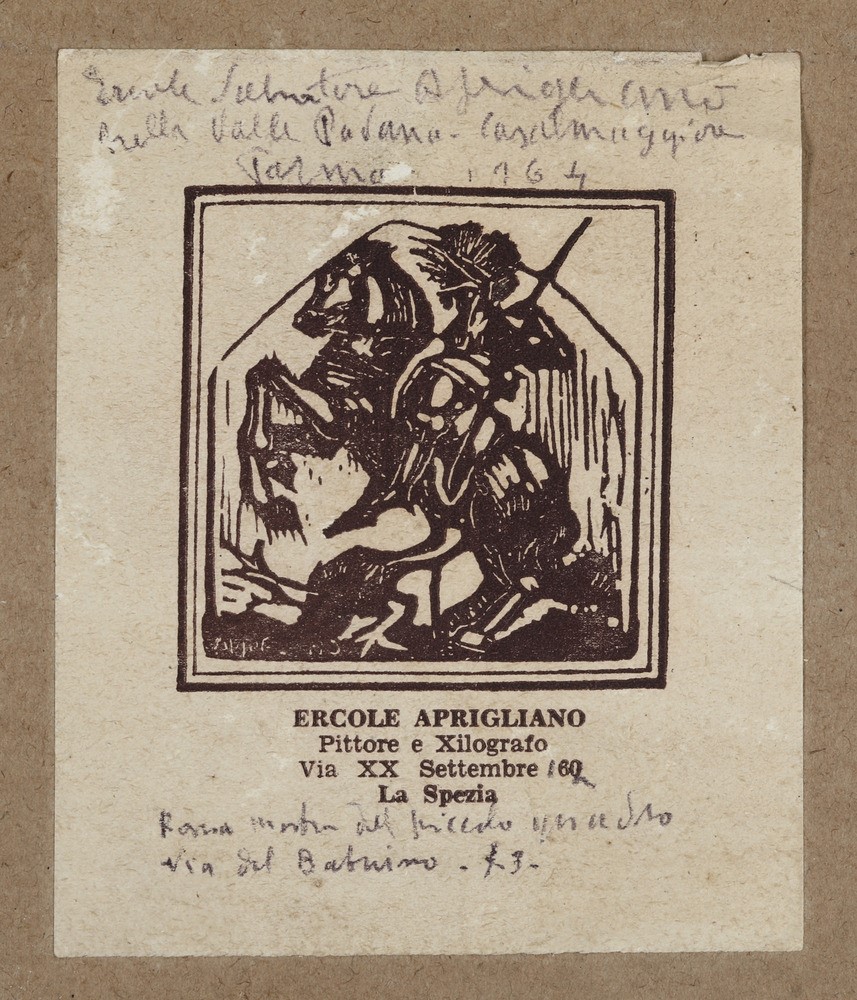 Ercole Salvatore Aprigliano
Bella Valle Padana - Casalmaggiore
Parma 1964
ERCOLE APRIGLIANO
Pittore e Xilografo
Via XX Settembre 160
La Spezia
Roma mostra del piccolo quadro
Via del Babuino -